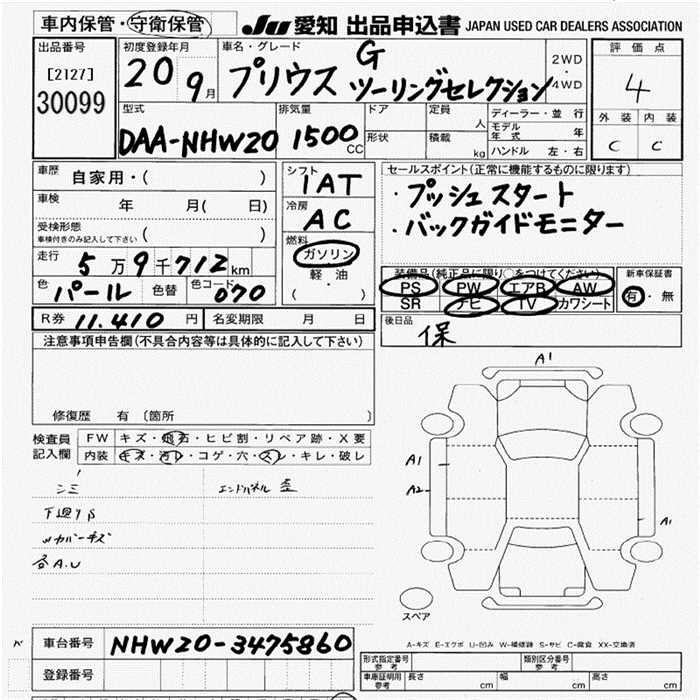 車内保管・守衛保管 JU 愛知 出品申込書 JAPAN USED CAR DEALERS ASSOCIATION
出品番号 [2127] 30099
初度登録年月 20 9月
車名・グレード プリウス G ツーリングセレクション
2WD・4WD
評価点 4
外装 内装
C C
型式 DAA-NHW20
排気量 1500 CC
ドア 形状
定員 人
積載 kg
ディーラー・並行
モデル年式 年
ハンドル 左・右
車歴 自家用・( )
車検 年 月( 日)
受検形態 車検付きのみ記入して下さい ( )
走行 5万9千712km
色 パール 色替 色コード 070
シフト 1AT
冷房 AC
燃料 ガソリン 軽・油 ( )
セールスポイント(正常に機能するものに限ります)
・プッシュスタート
・バックガイドモニター
装備品(純正品に限り○をつけてください) 新車保証書
PS PW エアB AW 有・無
SR ナビ TV カワシート
R券 11.410 円 名変期限 月 日
後日品 保
注意事項申告欄(不具合内容等は具体的に記入して下さい)
修復歴 有 〔箇所 〕
検査員記入欄 FW キズ・飛石・ヒビ割・リペア跡・X要
内装 キズ・汚レ・コゲ・穴・スレ・キレ・破レ
シミ エンドパネル歪
下廻りS
各A.U
A1
A1
A2
A1
スペア
A-キズ E-エクボ U-凹み W-補修跡 S-サビ C-腐食 XX-交換済
車台番号 NHW20-3475860
登録番号
形式指定番号 参考 類別区分番号 参考
車庫証明用 参考 長さ cm 幅 cm 高さ cm